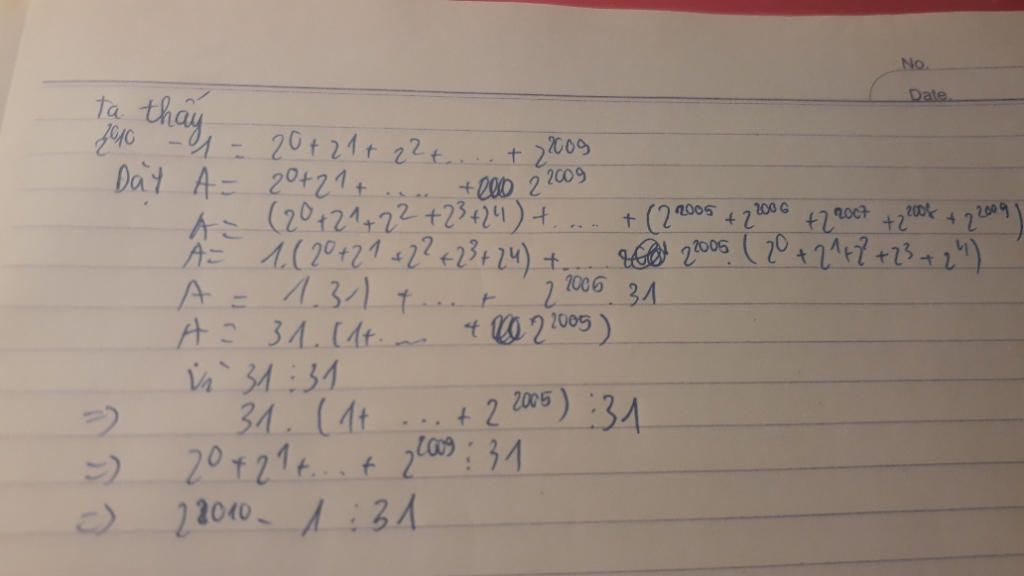 No.
Date.
Ta thấy
2²⁰¹⁰ - 1 = 2⁰ + 2¹ + 2² + ..... + 2²⁰⁰⁹
Dạy A = 2⁰ + 2¹ + ..... + 2²⁰⁰⁹
A = (2⁰ + 2¹ + 2² + 2³ + 2⁴) + ..... + (2²⁰⁰⁵ + 2²⁰⁰⁶ + 2²⁰⁰⁷ + 2²⁰⁰⁸ + 2²⁰⁰⁹)
A = 1.(2⁰ + 2¹ + 2² + 2³ + 2⁴) + .... 2²⁰⁰⁵. (2⁰ + 2¹ + 2² + 2³ + 2⁴)
A = 1.31) + ... + 2²⁰⁰⁵. 31
A = 31. (1+ ... + 2²⁰⁰⁵)
vì 31 ⋮ 31
=> 31. (1+ ... + 2²⁰⁰⁵) ⋮ 31
=> 2⁰ + 2¹ + ... + 2²⁰⁰⁹ ⋮ 31
=> 2²⁰¹⁰ - 1 ⋮ 31